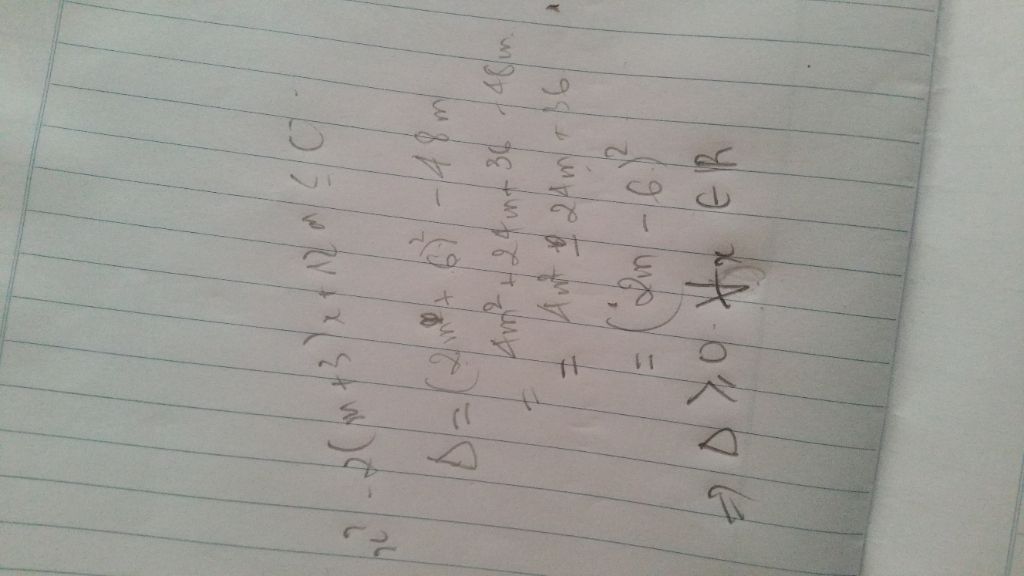 x² - 2(m+3)x + 12m ≤ 0
Δ = (2m + 6)² - 48m
= 4m² + 24m + 36 - 48m
= 4m² - 24m + 36
= (2m - 6)²
⇒ Δ ⩾ 0 ∀x ∈ R